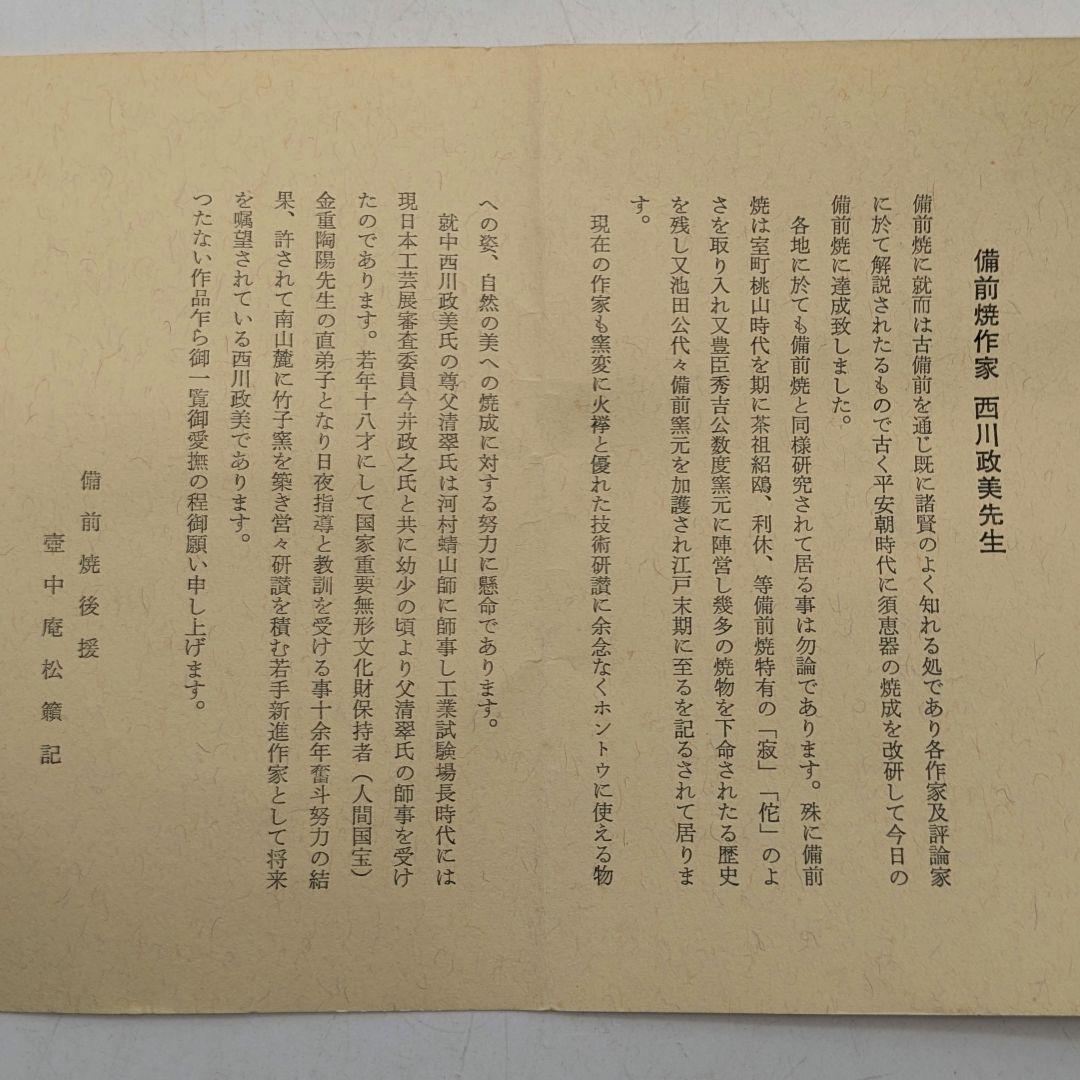 備前焼作家 西川政美先生
備前焼に就而は古備前を通じ既に諸賢のよく知れる処であり各作家及評論家
に於て解説されたるもので古く平安朝時代に須恵器の焼成を改研して今日の
備前焼に達成致しました。
各地に於ても備前焼と同様研究されて居る事は勿論であります。殊に備前
焼は室町桃山時代を期に茶祖紹鴎、利休、等備前焼特有の「寂」「侘」のよ
さを取り入れ又豊臣秀吉公数度窯元に陣営し幾多の焼物を下命されたる歴史
を残し又池田公代々備前窯元を加護され江戸末期に至るを記るされて居りま
す。
現在の作家も窯変に火襷と優れた技術研讃に余念なくホントウに使える物
への姿、自然の美への焼成に対する努力に懸命であります。
就中西川政美氏の尊父清翠氏は河村蜻山師に師事し工業試験場長時代には
現日本工芸展審査委員今井政之氏と共に幼少の頃より父清翠氏の師事を受け
たのであります。若年十八才にして国家重要無形文化財保持者（人間国宝）
金重陶陽先生の直弟子となり日夜指導と教訓を受ける事十余年奮斗努力の結
果、許されて南山麓に竹子窯を築き営々研讃を積む若手新進作家として将来
を嘱望されている西川政美であります。
つたない作品乍ら御一覧御愛撫の程御願い申し上げます。
備前焼後援
壺中庵松籟記